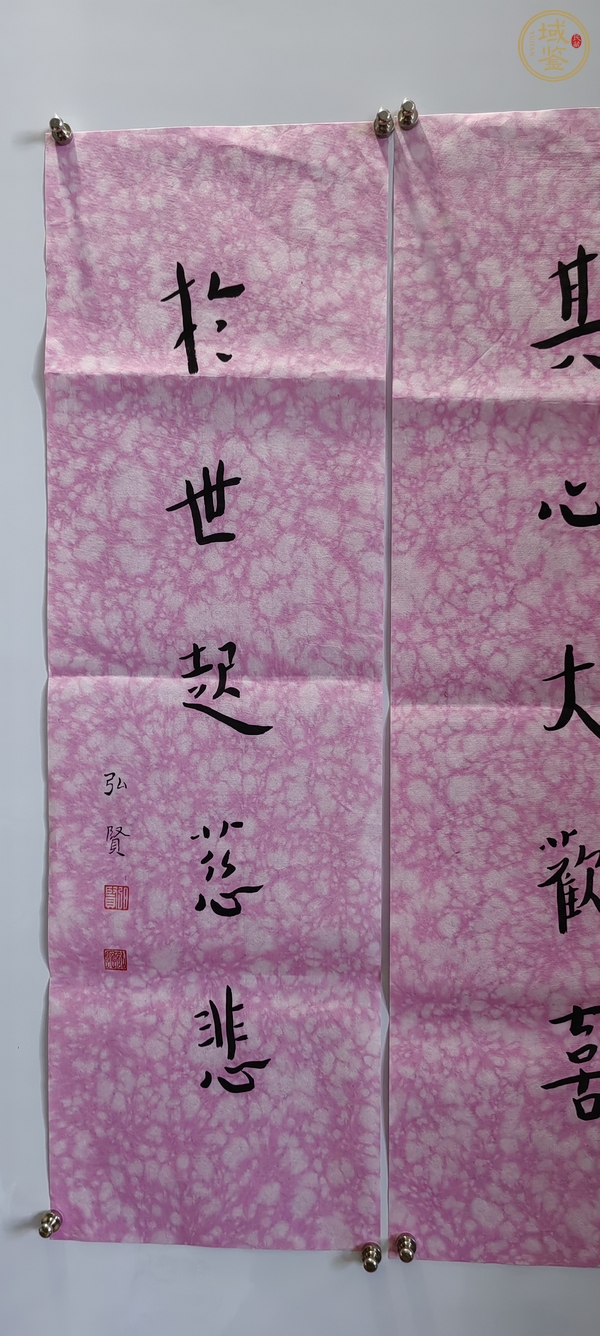 其心大歡喜
於世起慈悲
弘賢
域鉴